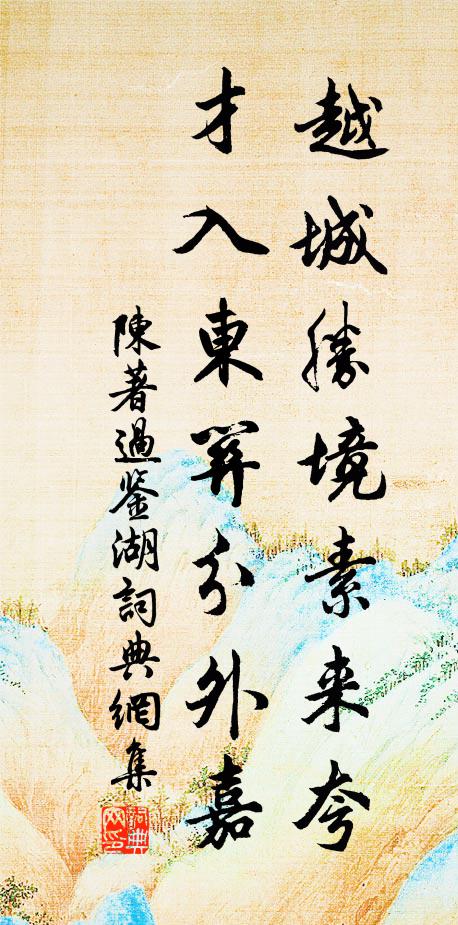 越城勝境素来夸
才入東關分外嘉
陳著過鉴湖詞典網集
詞典网印